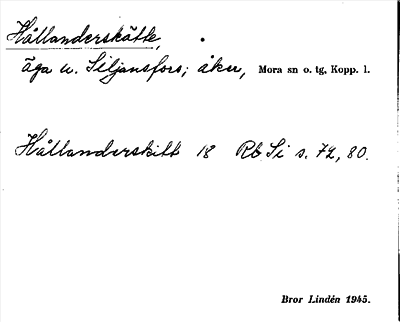 Hållanderskätte,
äga u. Siljansfors; åker, Mora sn o. tg, Kopp. l.
Hållanderskitt 18 Rb Si s. 72, 80.
Bror Lindén 1945.